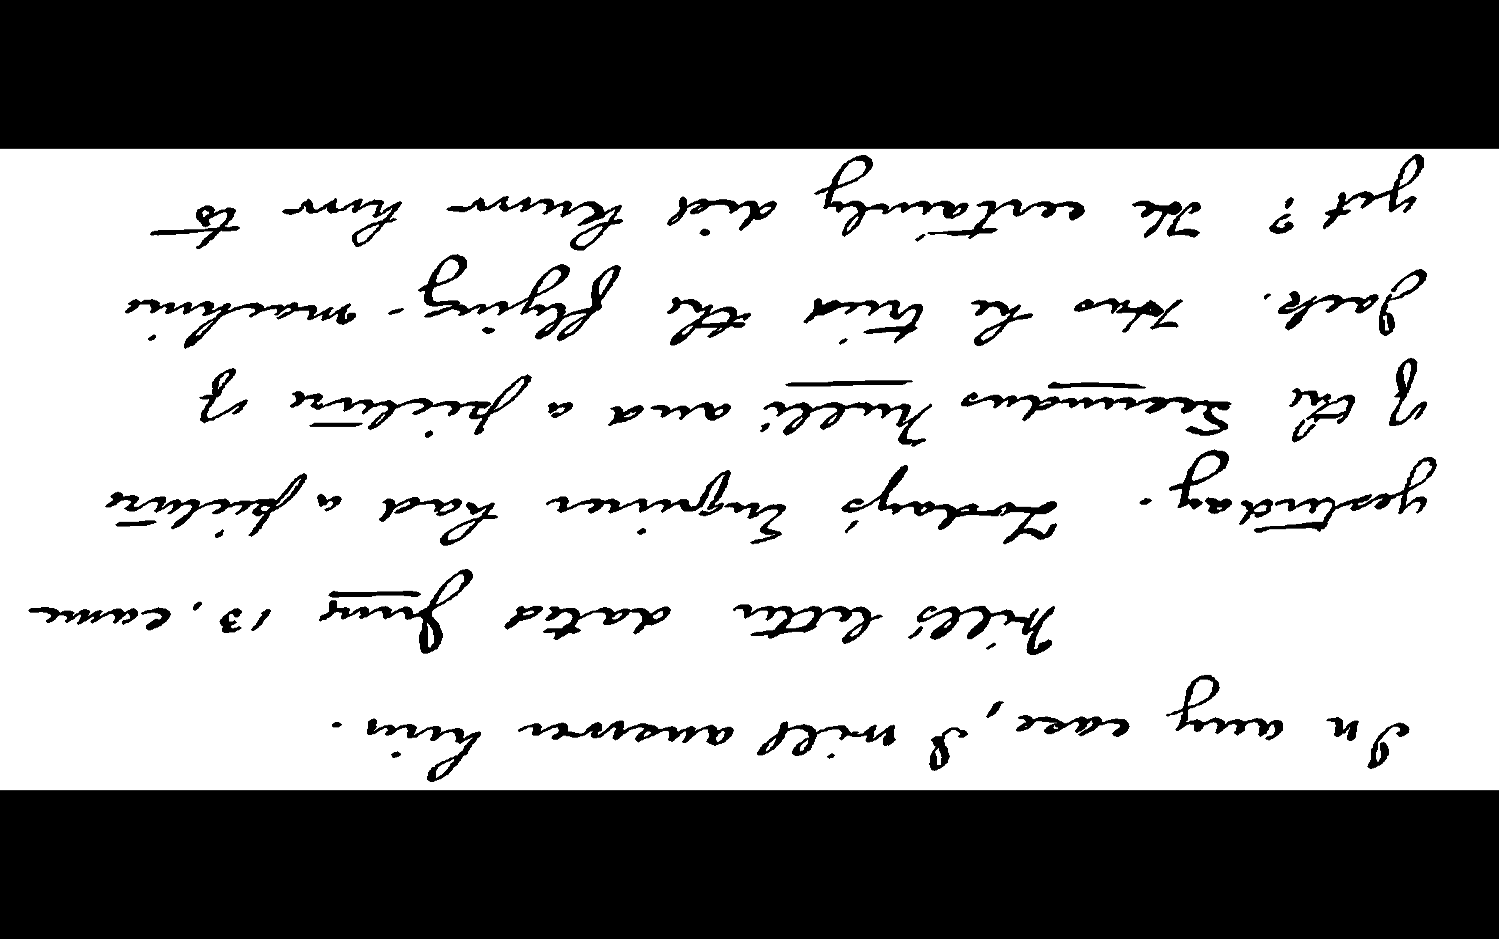 In any case, I will answer him.
Will's letter dated June 13, came
yesterday. Today's Engineer had a picture
of the Secundus Nulli and a picture of
Jack. Has he tried the flying-machine
yet? He certainly did know how to